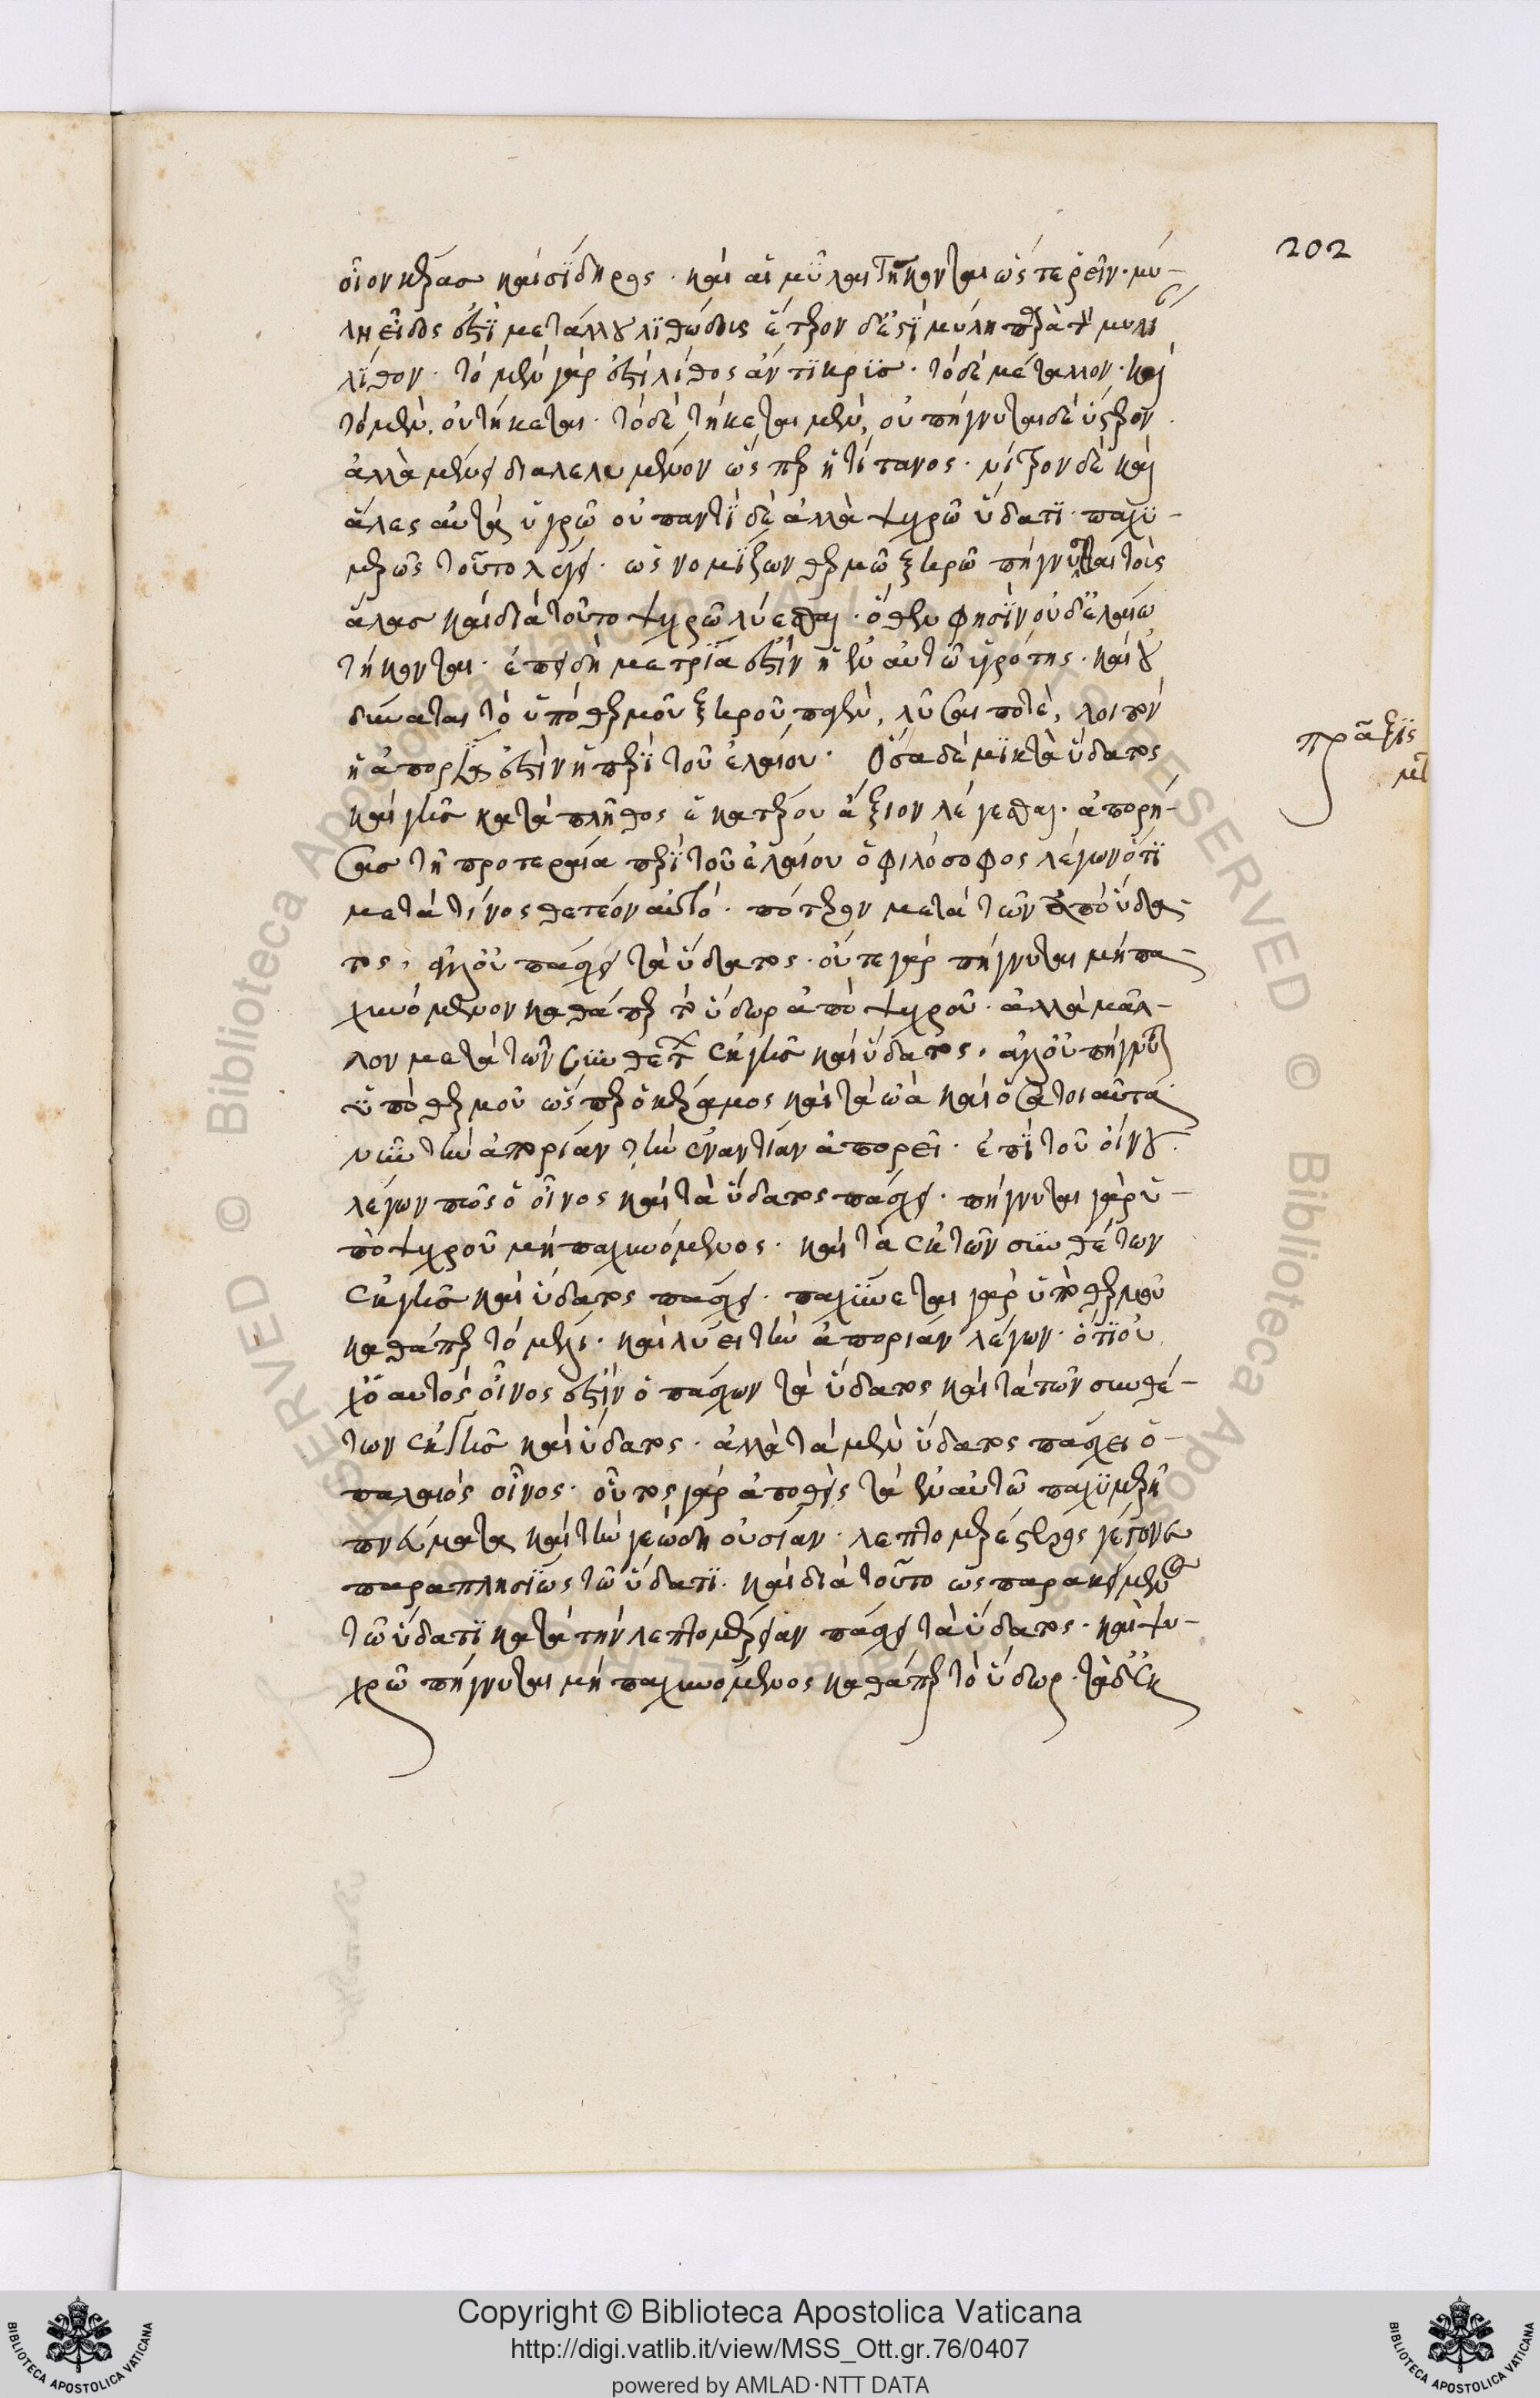 202
οἷον κέρας καὶ σίδηρος· καὶ αἱ μύλαι τήκονται ὥστε ῥεῖν· μύ-
λη εἶδος ἐστὶ μετάλλου λιθώδους ἕτερον δέ ἐστι μύλη παρὰ τὸν μυλί
λίθον· τὸ μὲν γὰρ ἐστὶ λίθος ἀντικρὺς· τὸ δὲ μέταλλον· καὶ
τὸ μὲν, οὐ τήκεται· τὸ δὲ τήκεται μὲν, οὐ πήγνυται δὲ ὕστερον
ἀλλὰ μένει διαλελυμένον ὥσπερ ἡ τίτανος· νίτρον δὲ καὶ
ἅλες αὐτὰ ὑγρῷ οὐ παντὶ δὲ ἀλλὰ ψυχρῷ ὕδατι· παχυ-
μερῶς τοῦτο λέγει· ὡς νομίζων θερμῷ ξηρῷ πήγνυσθαι τοὺς
ἅλας καὶ διὰ τοῦτο ψυχρῷ λύεσθαι· ὅθεν φησὶν οὐδ' ἐλαίῳ
τήκονται· ἐπειδὴ μετρία ἐστὶν ἡ ἐν αὐτῷ ὑγρότης· καὶ οὐ
δύναται τὸ ὑπὸ θερμοῦ ξηροῦ παγὲν, λῦσαι ποτὲ, λοιπὸν
ἡ ἀπορία ἐστὶν ἡ περὶ τοῦ ἐλαίου· Ὅσα δὲ μικτὰ ὕδατος
πρᾶξις
καὶ γῆς κατὰ πλῆθος ἑκατέρου ἄξιον λέγεσθαι· ἀπορή-
σας τῇ προτεραίᾳ περὶ τοῦ ἐλαίου ὁ φιλόσοφος λέγων ὅτι
μετὰ τίνος θετέον αὐτὸ· πότερον μετὰ τῶν ἀπὸ ὕδα-
τος, ἀλλ' οὐ πάσχει τὰ ὕδατος· οὔτε γὰρ πήγνυται μὴ πα
χυνόμενον καθάπερ τὸ ὕδωρ ἀπὸ ψυχροῦ· ἀλλὰ μᾶλ-
λον μετὰ τῶν συνθέτων ἐκ γῆς καὶ ὕδατος, ἀλλ' οὐ πήγνυται
ὑπὸ θερμοῦ ὥσπερ ὁ κέραμος καὶ τὰ ὠὰ καὶ ὅσα τοιαῦτα
νῦν τὴν ἀπορίαν τὴν ἐναντίαν ἀπορεῖ· ἐπὶ τοῦ οἴνου
λέγων πῶς ὁ οἶνος καὶ τὰ ὕδατος πάσχει· πήγνυται γὰρ ὑ-
πὸ ψυχροῦ μὴ παχυνόμενος· καὶ τὰ ἐκ τῶν συνθέτων
ἐκ γῆς καὶ ὕδατος πάσχει· παχύνεται γὰρ ὑπὸ θερμοῦ
καθάπερ τὸ μέλι· καὶ λύει τὴν ἀπορίαν λέγων· ὅτι οὐ
χ ὁ αὐτὸς οἶνος ἐστὶν ὁ πάσχων τὰ ὕδατος καὶ τὰ τῶν συνθέ-
των ἐκ γῆς καὶ ὕδατος· ἀλλὰ τὰ μὲν ὕδατος πάσχει ὁ-
παλαιὸς οἶνος· οὗτος γὰρ ἀποθεὶς τὰ ἐν αὐτῷ παχυμερῆ
πνεύματα καὶ τὴν γεώδη οὐσίαν· λεπτομερέστερος γέγονε
παραπλησίως τῷ ὕδατι· καὶ διὰ τοῦτο ὡς παρακείμενος
τῷ ὕδατι κατὰ τὴν λεπτομέρειαν πάσχει τὰ ὕδατος· καὶ ψυ-
χρῷ πήγνυται μὴ παχυνόμενος καθάπερ τὸ ὕδωρ· τὰ δ' ἐκ
Copyright © Biblioteca Apostolica Vaticana
http://digi.vatlib.it/view/MSS_Ott.gr.76/0407
powered by AMLAD·NTT DATA